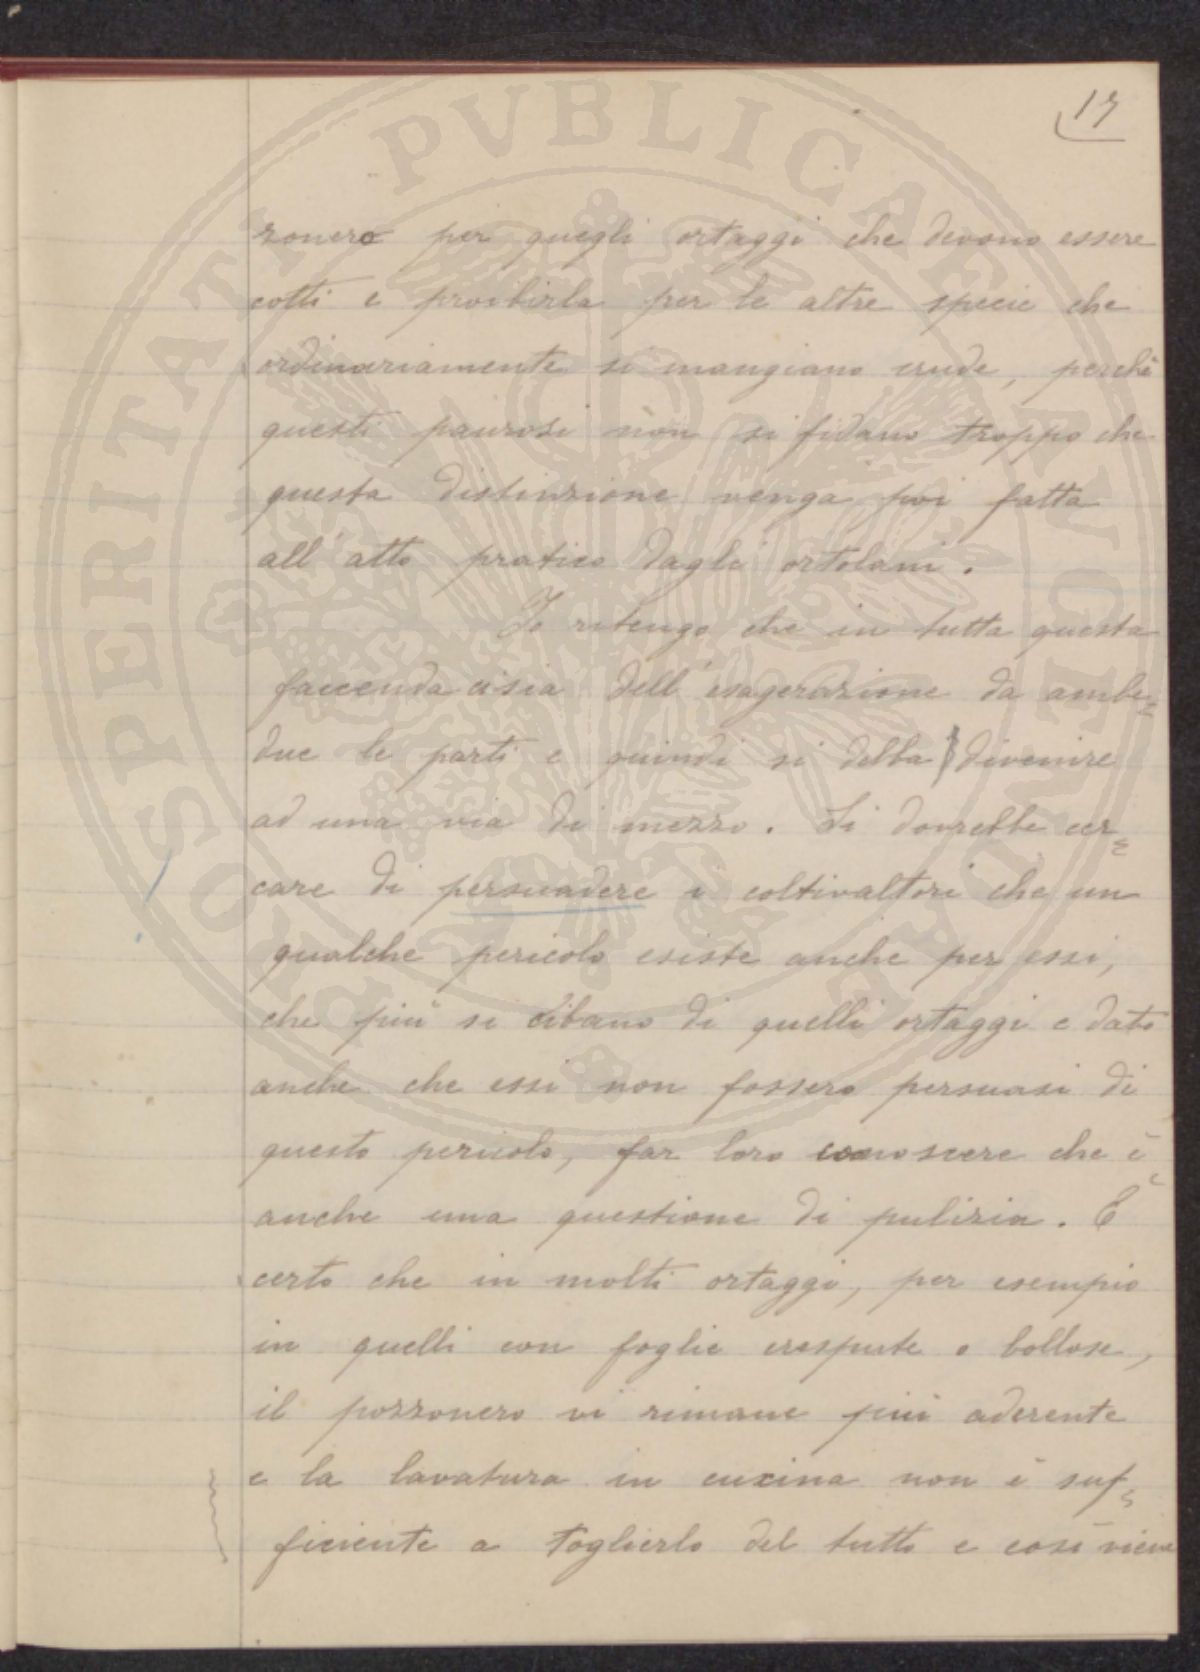 17
zonero per quegli ortaggi che devono essere
cotti e proibirla per le altre specie che
ordinariamente si mangiano crude, perchè
questi paurosi non si fidano troppo che
questa distinzione venga poi fatta
all'atto pratico dagli ortolani.
Io ritengo che in tutta questa
faccenda ci sia dell'esagerazione da ambe=
due le parti e quindi si debba divenire
ad una via di mezzo. Si dovrebbe cer=
care di persuadere i coltivaltori che un
qualche pericolo esiste anche per essi,
che più si cibano di quelli ortaggi e dato
anche che essi non fossero persuasi di
questo pericolo, far loro conoscere che è
anche una questione di pulizia. È
certo che in molti ortaggi, per esempio
in quelli con foglie crespute o bollose,
il pozzonero vi rimane più aderente
e la lavatura in cucina non è suf=
ficiente a toglierlo del tutto e così viene
PROSPERITATI PVBLICAE AVGENDAE